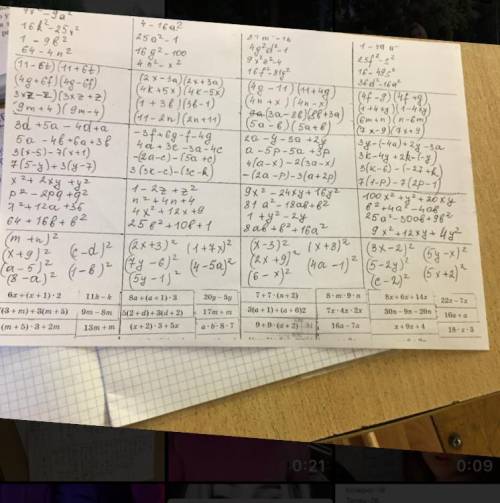 4x² - 9a²
16k² - 25x²
1 - 9b²
64 - 4n²
4 - 16a²
25a² - 1
16g² - 100
4n² - x²
4g²d² - 1
9x²a² - 4
16f² - 81y²
25f² - s²
16 - 49c²
36d² - 16a²
(11 - 6t)(11+6t)
(4g+6f)(4g-6f)
(9m+4)(9m-4)
(2x-3a)(2x+3a)
(4k+5x)(4k-5x)
(1+3b)(3b-1)
(11-2n)(2n+11)
(4g-11)(11+4g)
(4n+x)(4n-x)
(3a-8b)(8b+3a)
(5a-b)(5a+b)
(4f-g)(4f+g)
(1+4y)(1-4y)
(6m+n)(n-6m)
(7x-9)(7x+9)
3d+5a-4d+a
5a-4b+6a+3b
3(x-5)-7(x+1)
7(5-y)+3(y-7)
-3f+6g-f-4g
4a+3c-3a-4c
-(2a-c)-(5a+c)
3(3k-c)-(3c-k)
2a-y-3a+2y
a-5p-5a+3p
4(a-x)-2(3a-x)
-(2a-p)-3(a+2p)
3y-(-4a)+2y-3a
3k-4y+2k-(-y)
3(k-6)-(-2k+k)
7(1-p)-7(2p-1)
x²+2xy+y²
p²-2pq+q²
a²+12a+36
64+16b+b²
1-2z+z²
n²+4n+4
4x²+12x+9
25b²+10b+1
9x²-24xy+16y²
81a²-18ab+b²
1+y²-2y
8ab+b²+16a²
100x²+y²+20xy
b²+4a²-4ab
25a²-30ab+9b²
9x²+12xy+4y²
(m+n)²
(x+9)² (c-d)²
(a-5)² (1-b)²
(8-a)²
(2x+3)² (1+7x)²
(7y-6)² (4-5a)²
(5y-1)²
(x-3)² (x+8)²
(2x+9)² (4a-1)²
(6-x)²
(3x-2)² (5y-x)²
(5-2y)² (5x+2)²
(c-2)²
6x + (x + 1) · 2
11k - k
8a + (a + 1) · 3
20y - 5y
7 + 7 · (n + 2)
8 · m · 9 · n
8x + 6x + 14x
22x - 7x
(3 + m) + 3(m + 5)
9m - 8m
5(2 + d) + 3(d + 2)
17m + m
3(a + 1) + (a + 6)2
7x · 4x · 2x
30n - 9n - 20n
16a + a
(m + 5) · 3 + 2m
13m + m
(x + 2) · 3 + 5x
a · b · 8 · 7
9 + 9 · (a + 2)
16a - 7a
x + 9x + 4
18 · x · 3
0:21
0:09